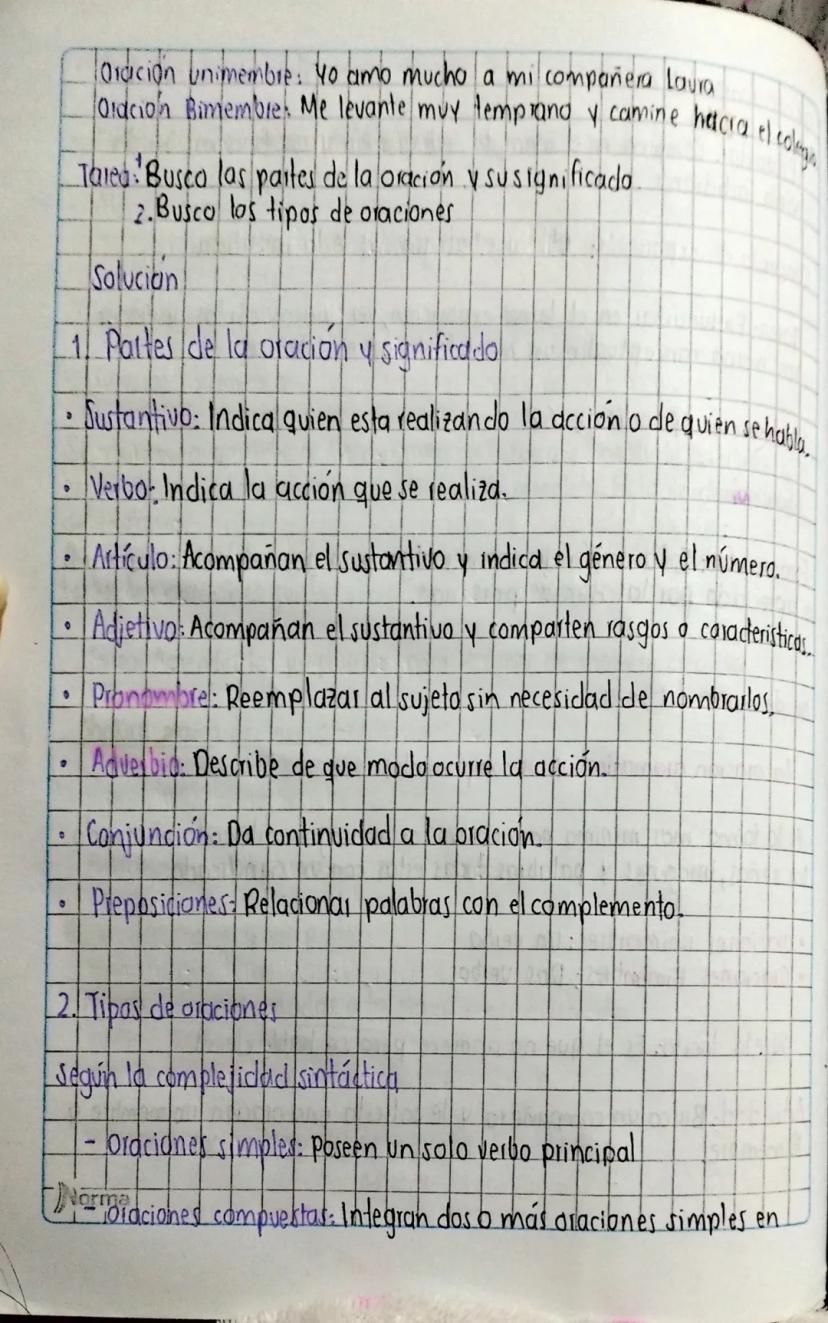 Oración Unimembre: Yo amo mucho a mi compañera Laura
Oración Bimembre: Me levante muy temprano y camine hacia el colegio
Tarea: 1. Busco las partes de la oración y su significado
2. Busco los tipos de oraciones
Solución
1. Partes de la oración y significado
• Sustantivo: Indica quien esta realizando la acción o de quien se habla.
• Verbo: Indica la acción que se realiza.
• Artículo: Acompañan el sustantivo y indica el género y el número.
• Adjetivo: Acompañan el sustantivo y comparten rasgos o caracteristicas.
• Pronombre: Reemplazar al sujeto sin necesidad de nombrarlos.
• Adverbio: Describe de que modo ocurre la acción.
• Conjunción: Da continuidad a la oración.
• Preposiciones: Relacionar palabras con el complemento.
2. Tipos de oraciones
Según la complejidad sintáctica
- Oraciones simples: Poseen un solo verbo principal
Norma
- Oraciones compuestas: Integran dos o más oraciones simples en